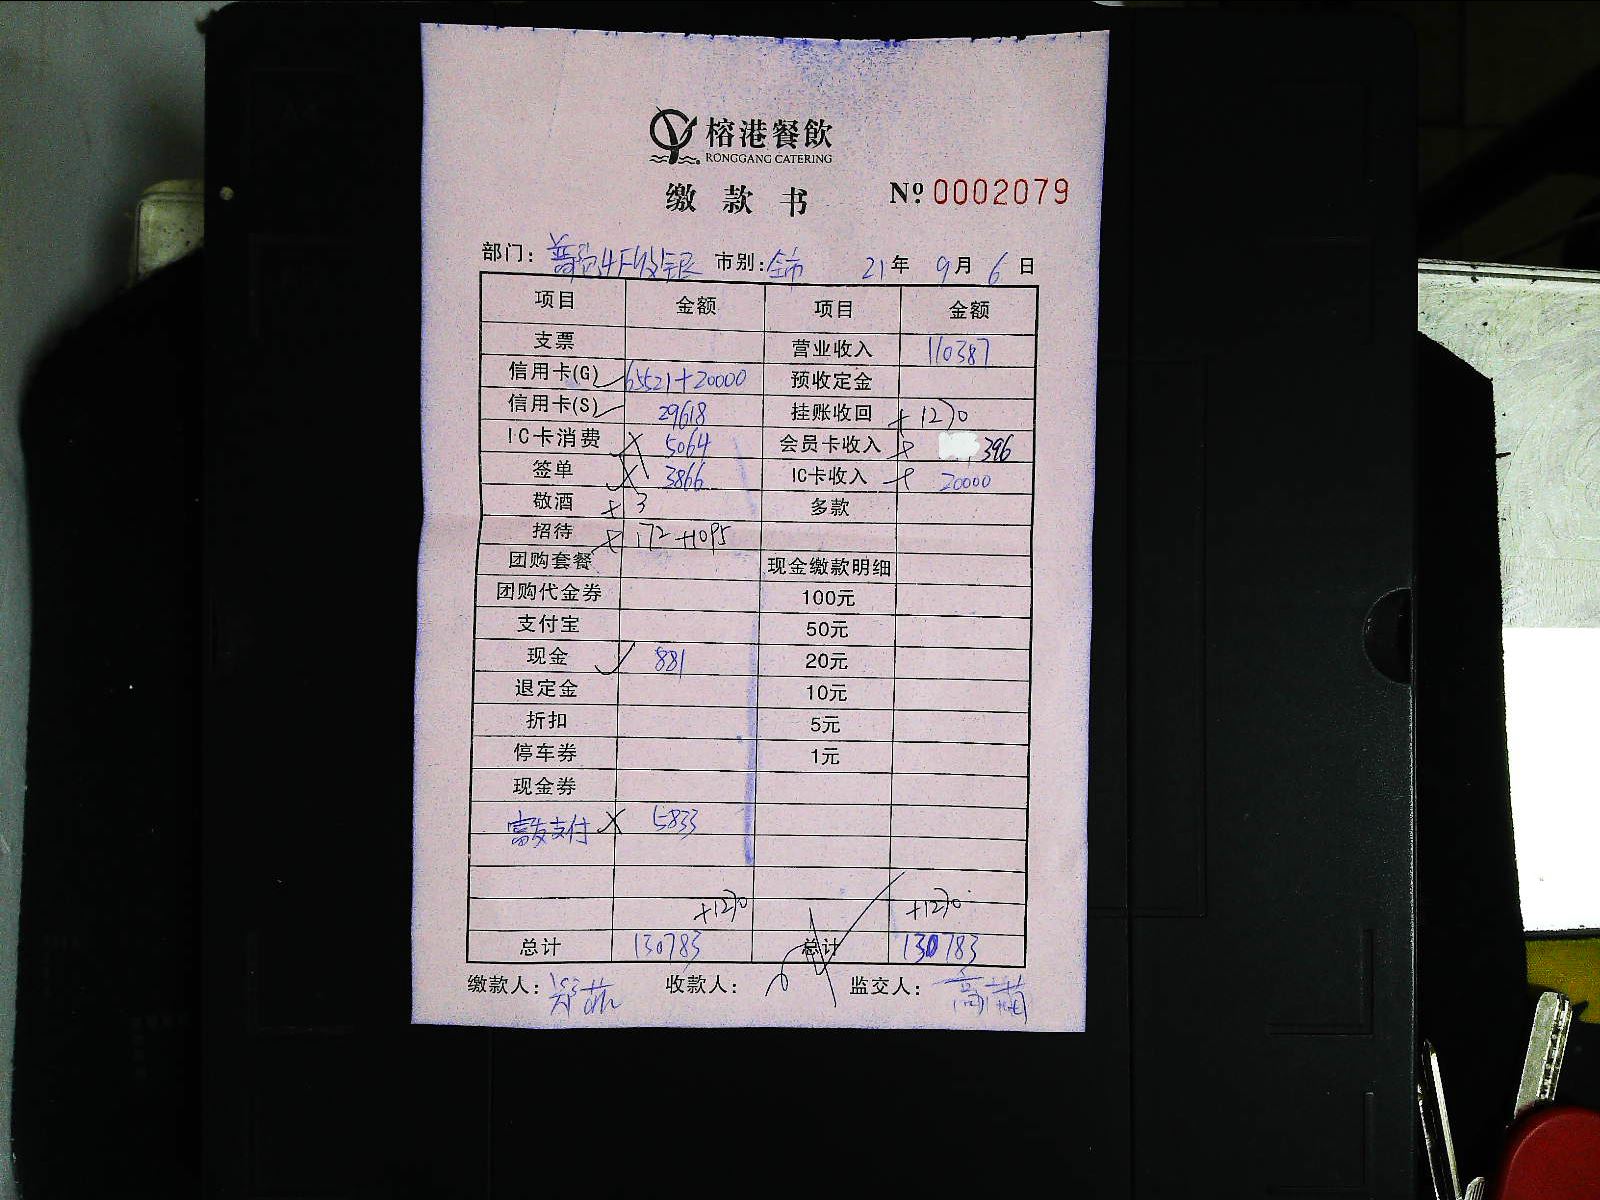 榕港餐飲
RONGGANG CATERING
缴款书 Nº 0002079
部门: 市别: 21年 9月 6日
项目 金额 项目 金额
支票 营业收入 110387
信用卡(G) 65521+20000 预收定金
信用卡(S) 29618 挂账收回 +1270
IC卡消费 5064 会员卡收入 396
签单 3866 IC卡收入 20000
敬酒 3 多款
招待 172+1095
团购套餐 现金缴款明细
团购代金券 100元
支付宝 50元
现金 881 20元
退定金 10元
折扣 5元
停车券 1元
现金券
富友支付 5833
+1270 +1270
总计 130783 总计 130783
缴款人: 收款人: 监交人: